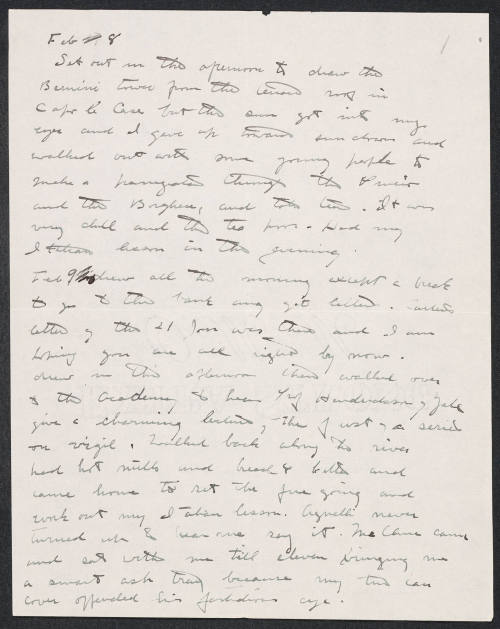 Feb 8 1
Set out in the afternoon to draw the
Bernini tower from the roof in
Capo le Case but the sun got into my
eyes and I gave up toward sundown and
walked out with some young people to
make a through the Pincio
and the Borghese, and took tea. It was
very chill and the tea poor. Had my
Italian lesson in the evening.
Feb 9 drew all the morning except a break
to go to the bank and get letters.
letter of the 21 Jan was there and I am
hoping you are all right by now.
drew in the afternoon then walked over
to the Academy to hear Prof Hendrickson of Yale
give a charming lecture, the first of a series
on Virgil. Walked back along the river
had hot milk and bread & butter and
came home to set the fire going and
work out my Italian lesson. Agnelli never
turned up to hear me say it. McCane came
and sat with me till eleven bringing me
a smart ash tray because my tin can
cover offended his fastidious eye.